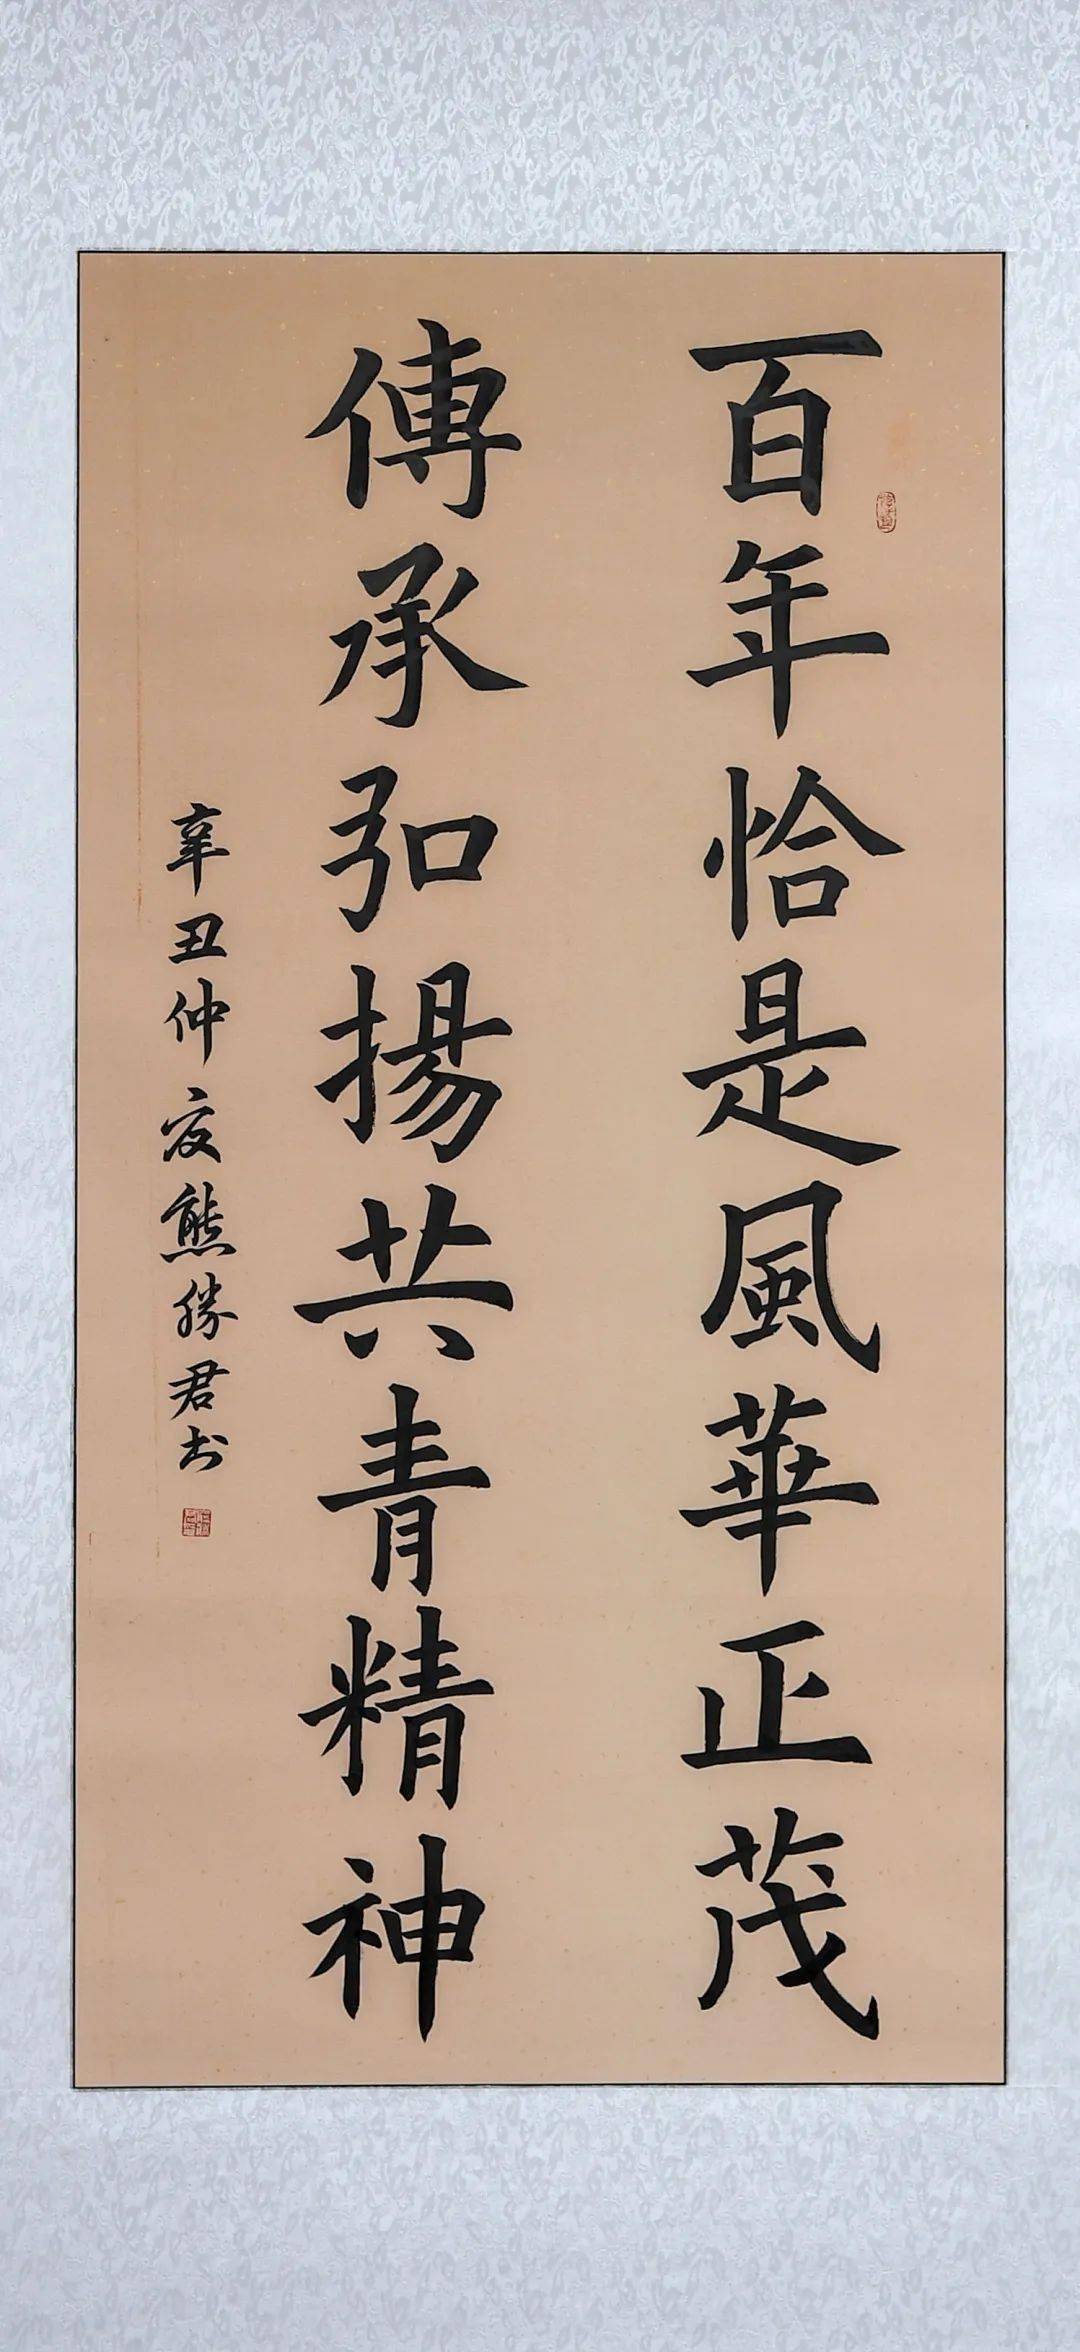 百年恰是風華正茂
傳承弘揚共青精神
辛丑仲夏熊勝君书